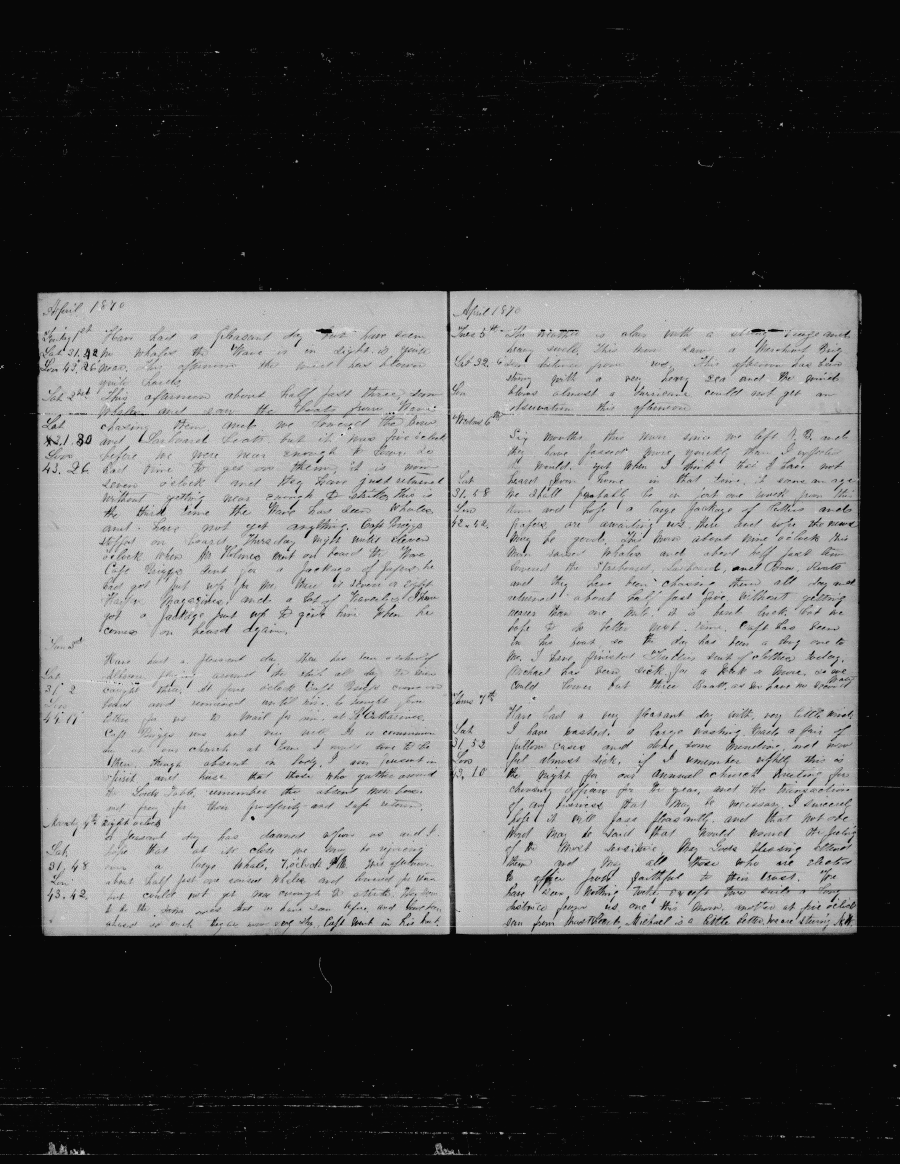 April 1870
Friday 1st Have had a pleasant day but have seen
Lat 31.42 no whales the Wave is in sight is quite
Lon 43.26 near. This afternoon the wind has blown
quite hard
Sat 2nd This afternoon about half past three saw
whales and saw the boats from Wave
Lat chasing them, and we lowered the bow
31.30 and Larboard boats but it was five o'clock
Lon before we were near enough to lower so
43.26 had time to get on them, it is now
seven o'clock and they have just returned
without getting near enough to strike this is
the third time the Wave has seen whales
and have not got anything. Capt Briggs
stopped on board Thursday night until eleven
o'clock when Mr Holmes went on board the Wave
Capt Briggs sent for a package of papers he
had got put up for me, there is seven or eight
Harper Magazines, and a lot of I have
got a package put up to give him when he
comes on board again.
Sun 3rd
Have had a pleasant day there has been a
flying around the ship all day the men
Lat caught three. At five o'clock Capt Briggs came on
31. 2 board and remained until nine, he brought four
Lon letters for us to mail for him, at St Catharines
43. 11 Capt Briggs was not very well. It is communion
day at our church at home I would love to be
there, though absent in body, I am present in
spirit and hope that those who gather around
the Lords Table, remember the absent members
and pray for their prosperity and safe return.
Monday 4th Eight o'clock
A pleasant day has dawned upon us and I
Lat hope that at its close we may be rejoicing
31. 48 over a large whale. 7 o'clock P.M. This afternoon
Lon about half past one raised whales and lowered for them
43.42 but could not get near enough to strike. They seem
to be the same ones that we have seen before, and have been
chased so much they are now very shy. Capt went in his boat.
April 1870
Tues 5th The weather is clear with a strong breeze and
heavy swell, This morn saw a Merchant Brig
Lat 32. 6 some distance from us. This afternoon has been
strong with a very heavy sea and the wind
Lon blows almost a hurricane could not get an
observation this afternoon
Wednes 6th
Six months this morn since we left N. B. and
they have passed more quickly than I expected
they would. yet when I think that I have not
Lat heard from home in that time, it seems an age
31. 58 we shall probably be in port one week from this
Lon time and hope a large package of letters and
42. 52 papers, are awaiting us, there and hope the news
may be good. This morn about nine o'clock this
morn raised whales and about half past ten
lowered the Starboard, Larboard, and Bow, Boats
and they have been chasing them all day and
returned about half past five without getting
nearer than one mile, it is hard luck, but we
hope to do better next time. Capt has been
in his boat so the day has been a long one to
me. I have finished suit of clothes today.
Michael has been sick for a week or more, so we
could lower but three Boats, as we have no spare
Thurs 7th
Have had a very pleasant day with very little wind
Lat I have washed. a large washing. Made a pair of
31. 52 pillow cases and done some mending, and now
Lon feel almost sick, if I remember rightly this is
43. 10 the night for our annual church meeting for
choosing officers for the year, and the transaction
of any business that may be necessary, I sincerely
hope it will pass pleasantly and that not one
word may be said that would wound the feelings
of the most sensitive, May Gods blessing attend
them and may all those who are chosen
to office prove faithful to their trust. We
have seen nothing today except two sails a long
distance from us, one this morn. another at five o'clock
seen from Mast Heads, Michael is a little better, we are steering